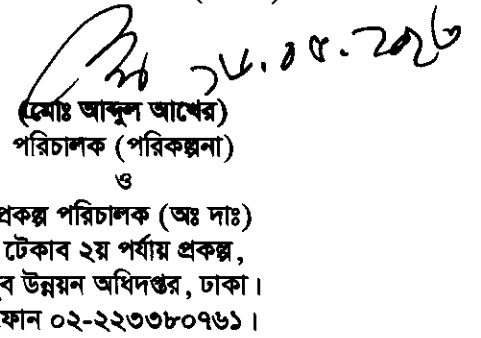 ১৮.০৫.২০২৩
(মোঃ আব্দুল আখের)
পরিচালক (পরিকল্পনা)
ও
প্রকল্প পরিচালক (অঃ দাঃ)
টেকাব ২য় পর্যায় প্রকল্প,
ব উন্নয়ন অধিদপ্তর, ঢাকা।
ফোন ০২-২২৩৩৮০৭৬১।